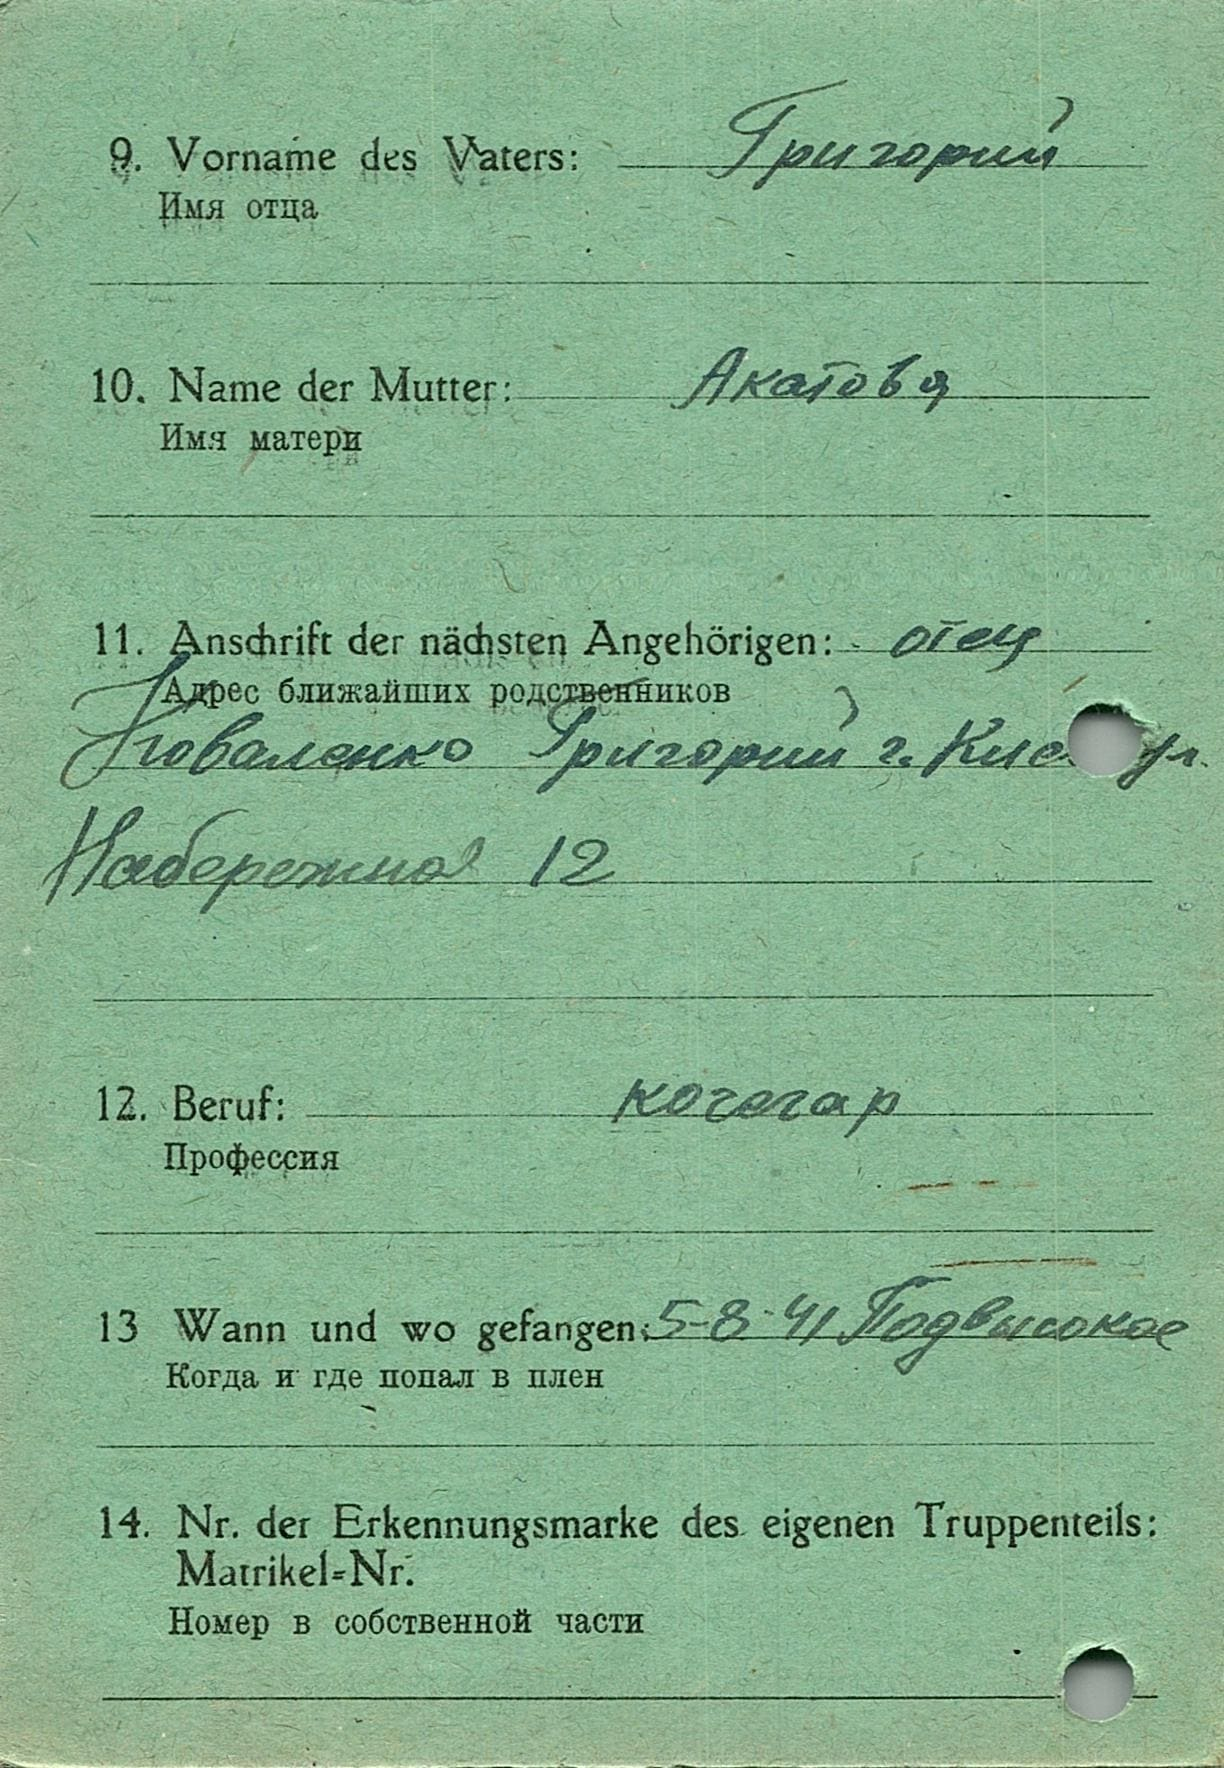 9. Vorname des Vaters: Григорий
Имя отца
10. Name der Mutter: Акатова
Имя матери
11. Anschrift der nächsten Angehörigen: отец
Адрес ближайших родственников
Коваленко Григорий г. Кие ул.
Набережная 12
12. Beruf: кочегар
Профессия
13 Wann und wo gefangen: 5-8-41 Подвысокое
Когда и где попал в плен
14. Nr. der Erkennungsmarke des eigenen Truppenteils:
Matrikel=Nr.
Номер в собственной части